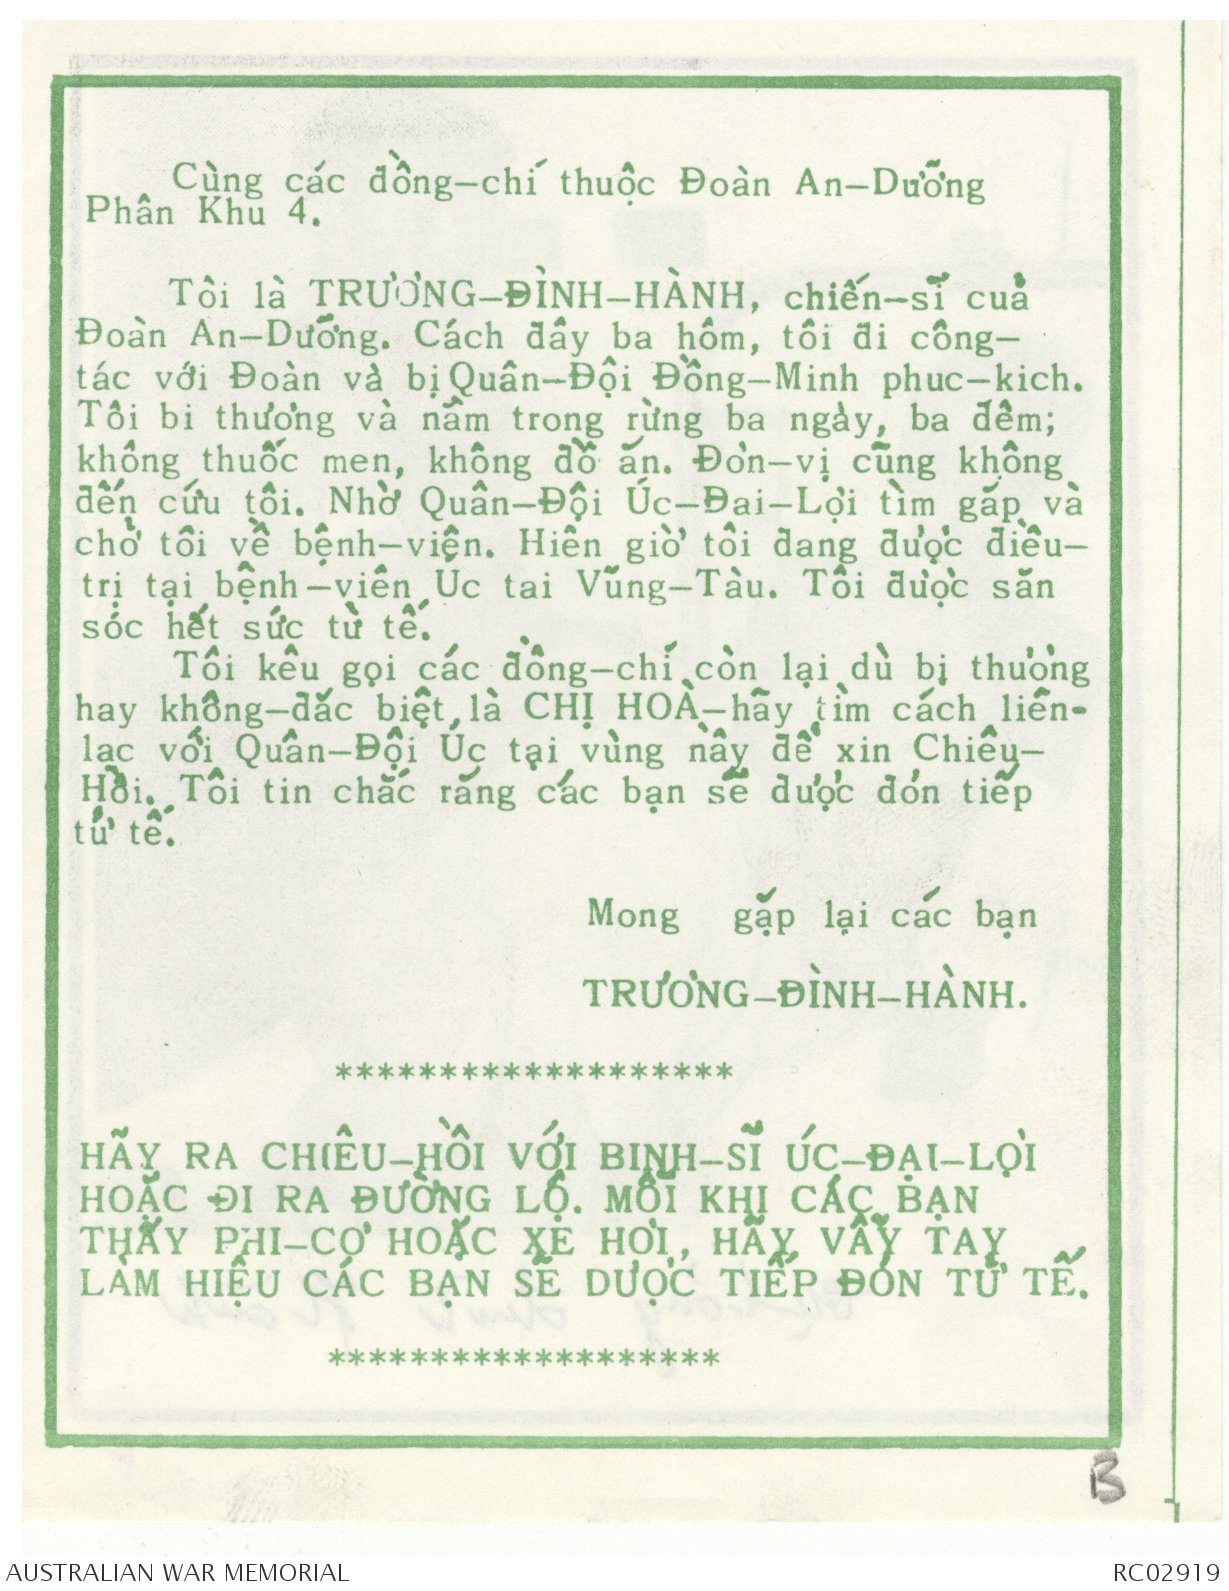 Cùng các đồng-chí thuộc Đoàn An-Dưỡng
Phân Khu 4.
Tôi là TRƯƠNG-ĐÌNH-HÀNH, chiến-sĩ cuả
Đoàn An-Dưỡng. Cách đây ba hôm, tôi đi công-
tác với Đoàn và bị Quân-Đội Đồng-Minh phuc-kich.
Tôi bi thương và nằm trong rừng ba ngày, ba đêm;
không thuốc men, không đồ ăn. Đơn-vị cũng không
đến cứu tôi. Nhờ Quân-Đội Úc-Đai-Lợi tìm gắp và
chở tôi về bệnh-viện. Hiên giờ tôi đang được điều-
trị tại bệnh-viên Úc tai Vũng-Tàu. Tôi được săn
sóc hết sức từ tế.
Tôi kêu gọi các đồng-chí còn lại dù bị thương
hay không-đăc biệt là CHỊ HOÀ-hãy tìm cách liên-
lac với Quân-Đội Úc tại vùng nầy để xin Chiêu-
Hồi. Tôi tin chắc rằng các bạn sẽ được đón tiếp
tử tế.
Mong gặp lại các bạn
TRƯƠNG-ĐÌNH-HÀNH.
*******************
HÃY RA CHIÊU-HỒI VỚI BINH-SĨ ÚC-ĐẠI-LỢI
HOẶC ĐI RA ĐƯỜNG LỘ. MỖI KHI CÁC BẠN
THẤY PHI-CƠ HOẶC XE HƠI, HÃY VẪY TAY
LÀM HIỆU CÁC BẠN SẼ DƯỢC TIẾP ĐÓN TỬ TẾ.
*******************
B
AUSTRALIAN WAR MEMORIAL RC02919